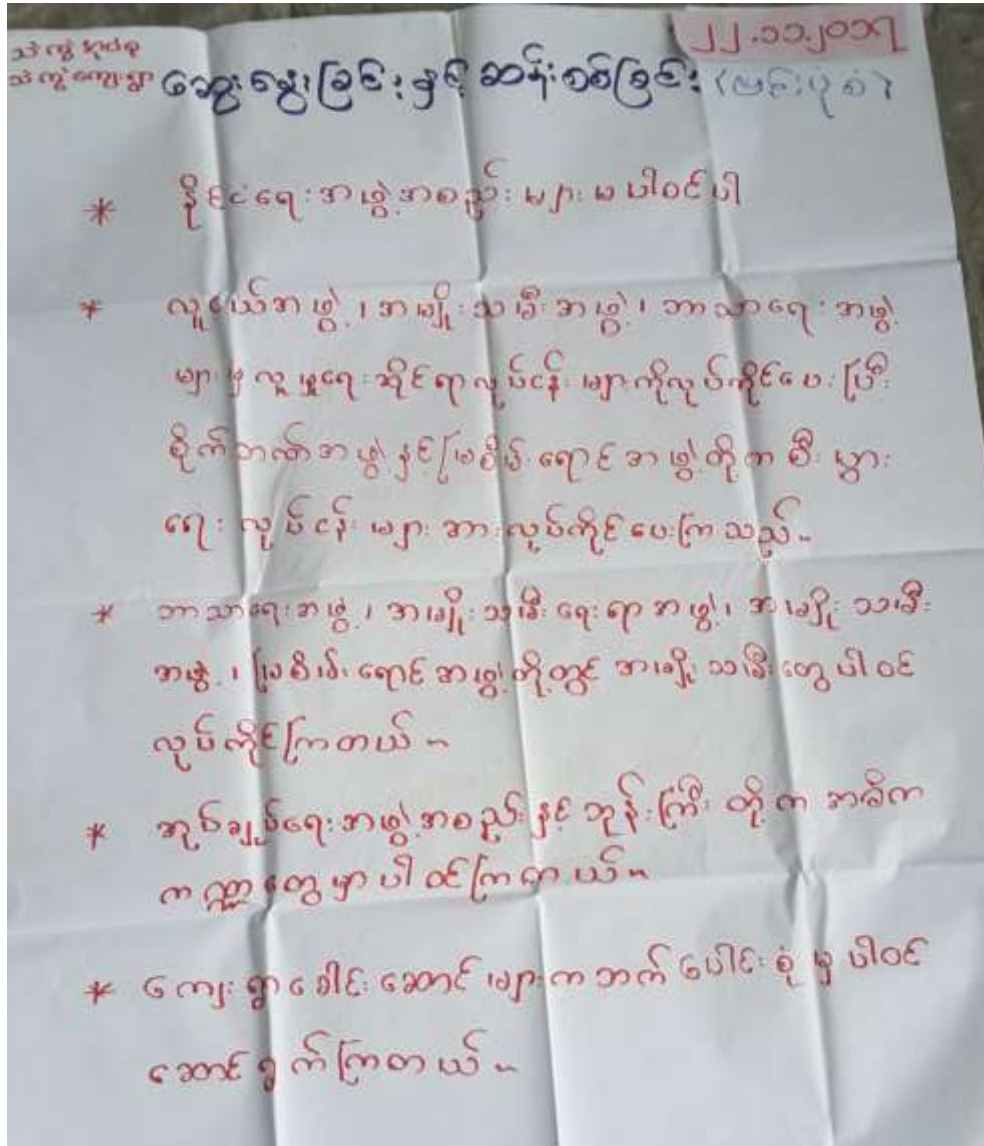 ၂၂.၁၁.၂၀၁၇
သဲကွဲအုပ်စု
သဲကွဲကျေးရွာ
ဆွေးနွေးခြင်းနှင့်ဆန်းစစ်ခြင်း (ဗြင်းပုံစံ)
* နိုင်ငံရေးအဖွဲ့အစည်းများမပါဝင်ပါ
* လူငယ်အဖွဲ့၊ အမျိုးသမီးအဖွဲ့၊ ဘာသာရေးအဖွဲ့
များမှလူမှုရေးဆိုင်ရာလုပ်ငန်းများကိုလုပ်ကိုင်ပေးပြီး
စိုက်ဘဏ်အဖွဲ့နှင့်မြစိမ်းရောင်အဖွဲ့တို့ကစီးပွား
ရေးလုပ်ငန်းများအားလုပ်ကိုင်ပေးကြသည်။
* ဘာသာရေးအဖွဲ့၊ အမျိုးသမီးရေးရာအဖွဲ့၊ အမျိုးသမီး
အဖွဲ့၊ မြစိမ်းရောင်အဖွဲ့တို့တွင် အမျိုးသမီးတွေပါဝင်
လုပ်ကိုင်ကြတယ်။
* အုပ်ချုပ်ရေးအဖွဲ့အစည်းနှင့်ဘုန်းကြီးတို့က အဓိက
ကဏ္ဍတွေမှာပါဝင်ကြတယ်။
* ကျေးရွာခေါင်းဆောင်များကဘက်ပေါင်းစုံမှပါဝင်
ဆောင်ရွက်ကြတယ်။